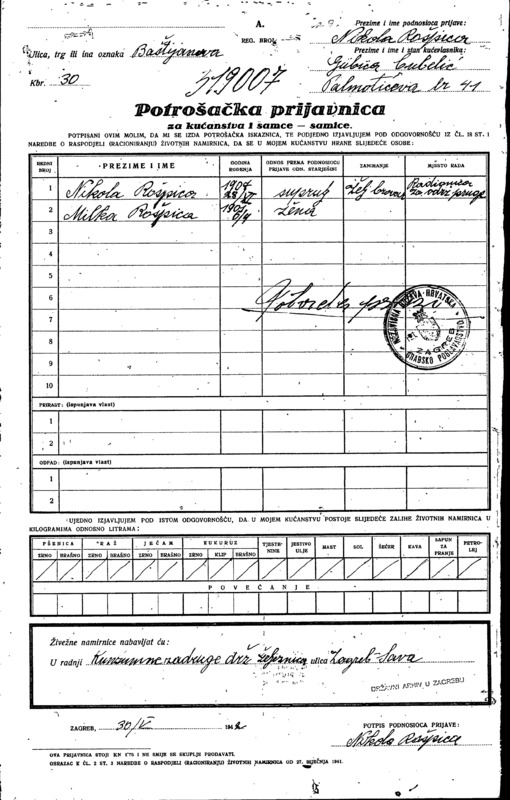 A.
REG. BROJ
319007
Prezime i ime podnosioca prijave:
Nikola Rošpica
Prezime i ime i stan kućevlasnika:
Ljubica Čubelić
Palmotićeva br 41
Ulica, trg ili ina oznaka Baštijanova
Kbr. 30
Potrošačka prijavnica
za kućanstva i samce — samice.
POTPISANI OVIM MOLIM, DA MI SE IZDA POTROŠAČKA ISKAZNICA, TE PODJEDNO IZJAVLJUJEM POD ODGOVORNOŠĆU IZ ČL. 18 ST. 1
NAREDBE O RASPODJELI (RACIONIRANJU) ŽIVOTNIH NAMIRNICA, DA SE U MOJEM KUĆANSTVU HRANE SLIJEDEĆE OSOBE:
REDNI BROJ
PREZIME I IME
GODINA ROĐENJA
ODNOS PREMA PODNOSIOCU PRIJAVE ODN. STARJEŠINI
ZANIMANJE
MJESTO RADA
1 Nikola Rošpica suprug
2 Milka Rošpica žena
3
4
5
6
7
8
9
10
NEZAVISNA DRŽAVA HRVATSKA
GRADSKO POGLAVARSTVO
ZAGREB
PRIRAST: (ispunjava vlast)
1
2
OTPAD: (ispunjava vlast)
1
2
UJEDNO IZJAVLJUJEM POD ISTOM ODGOVORNOŠĆU, DA U MOJEM KUĆANSTVU POSTOJE SLIJEDEĆE ZALIHE ŽIVOTNIH NAMIRNICA U
KILOGRAMIMA ODNOSNO LITRAMA:
PŠENICA RAŽ JEČAM KUKURUZ TJESTE-NINE JESTIVO ULJE MAST SOL ŠEĆER KAVA SAPUN ZA PRANJE PETRO-LEJ
ZRNO BRAŠNO ZRNO BRAŠNO ZRNO BRAŠNO ZRNO KLIP BRAŠNO
POVEĆANJE
Živežne namirnice nabavljat ću:
U radnji Konzumne zadruge drž željeznica ulica Zagreb-Sava
DRŽAVNI ARHIV U ZAGREBU
ZAGREB, 30/V 1942
POTPIS PODNOSIOCA PRIJAVE:
Nikola Rošpica
OVA PRIJAVNICA STOJI KN 0'75 I NE SMIJE SE SKUPLJE PRODAVATI.
OBRAZAC K ČL. 2 ST. 3 NAREDBE O RASPODJELI (RACIONIRANJU) ŽIVOTNIH NAMIRNICA OD 27. SIJEČNJA 1941.